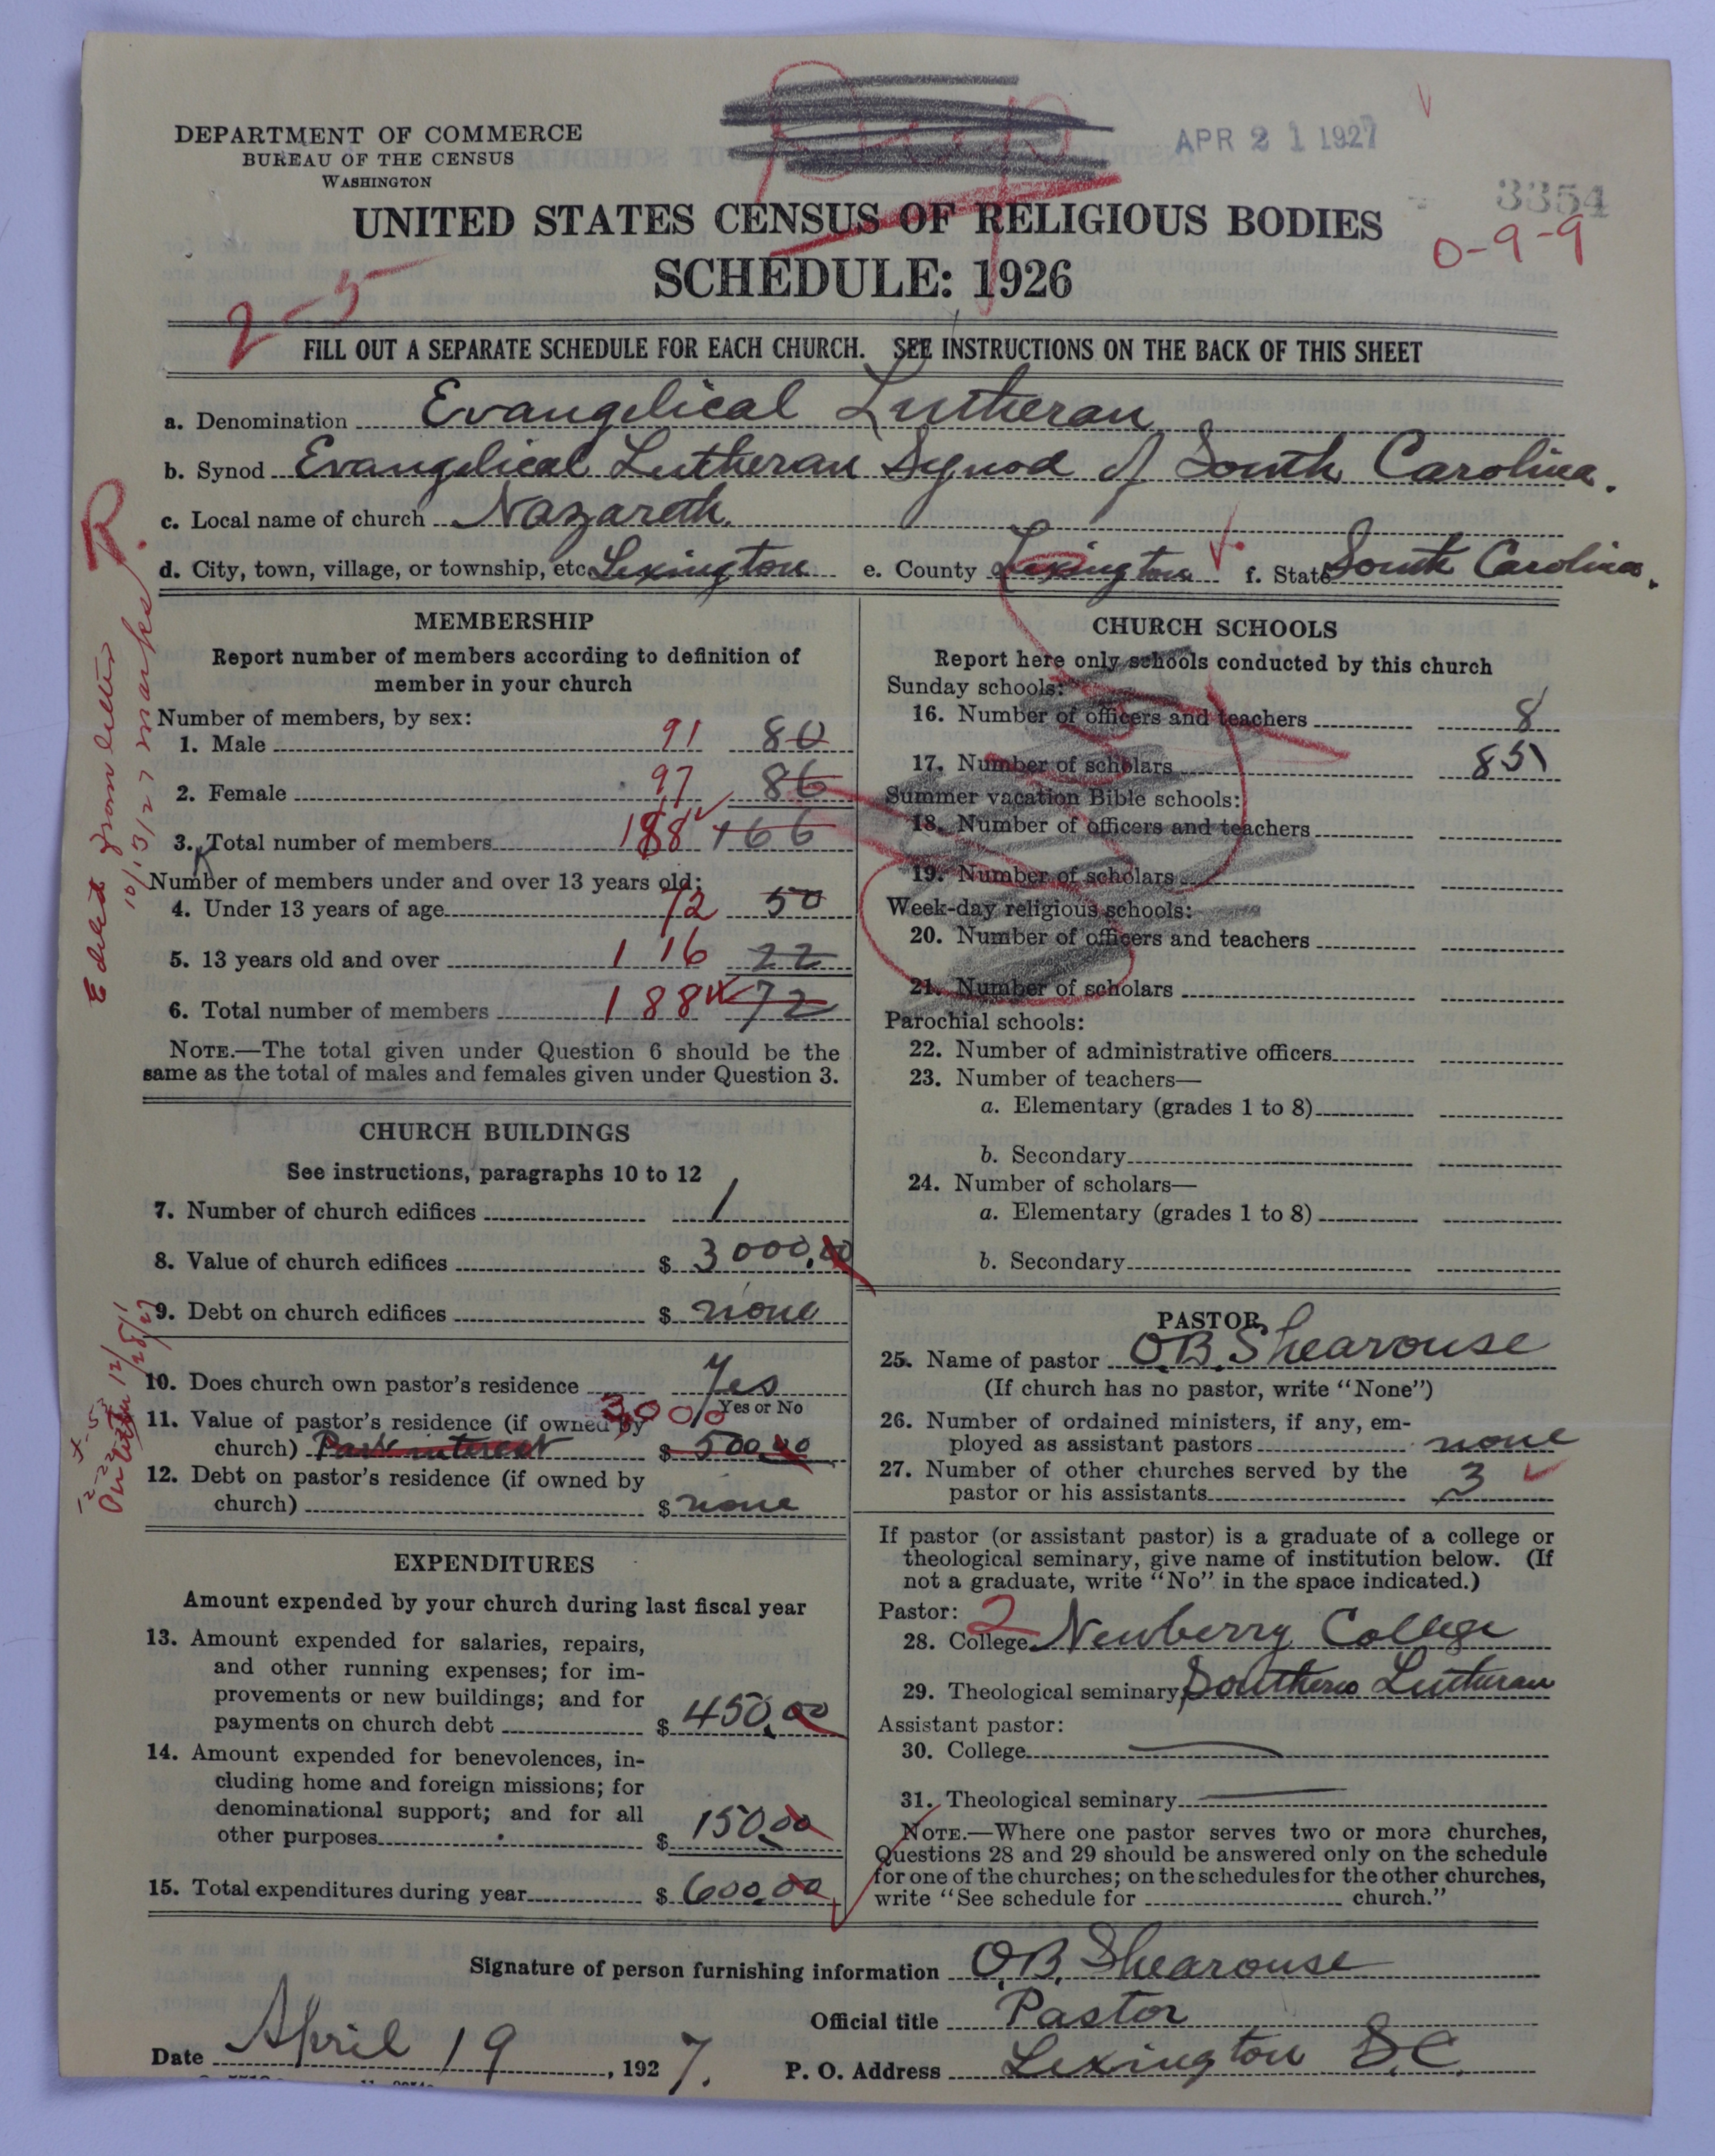 DEPARTMENT OF COMMERCE
BUREAU OF THE CENSUS
WASHINGTON
APR 21 1927
3354
0-9-9
UNITED STATES CENSUS OF RELIGIOUS BODIES
SCHEDULE: 1926
2-5
FILL OUT A SEPARATE SCHEDULE FOR EACH CHURCH. SEE INSTRUCTIONS ON THE BACK OF THIS SHEET
a. Denomination Evangelical Lutheran
b. Synod Evangelical Lutheran Synod of South Carolina.
c. Local name of church Nazareth
d. City, town, village, or township, etc. Lexington e. County Lexington f. State South Carolina.
R.
Edited from letter
10/13/27 marks
MEMBERSHIP
Report number of members according to definition of
member in your church
Number of members, by sex:
1. Male 91 80
2. Female 97 86
3. Total number of members 188 166
Number of members under and over 13 years old:
4. Under 13 years of age 72 50
5. 13 years old and over 116 22
6. Total number of members 188 72
NOTE.—The total given under Question 6 should be the
same as the total of males and females given under Question 3.
CHURCH BUILDINGS
See instructions, paragraphs 10 to 12
7. Number of church edifices 1
8. Value of church edifices $ 3000.00
9. Debt on church edifices $ none
10. Does church own pastor's residence Yes
Yes or No
11. Value of pastor's residence (if owned by 3,000
church) Part interest $ 500.00
12. Debt on pastor's residence (if owned by
church) $ none
EXPENDITURES
Amount expended by your church during last fiscal year
13. Amount expended for salaries, repairs,
and other running expenses; for im-
provements or new buildings; and for
payments on church debt $ 450.00
14. Amount expended for benevolences, in-
cluding home and foreign missions; for
denominational support; and for all
other purposes $ 150.00
15. Total expenditures during year $ 600.00
CHURCH SCHOOLS
Report here only schools conducted by this church
Sunday schools:
16. Number of officers and teachers 8
17. Number of scholars 85
Summer vacation Bible schools:
18. Number of officers and teachers
19. Number of scholars
Week-day religious schools:
20. Number of officers and teachers
21. Number of scholars
Parochial schools:
22. Number of administrative officers
23. Number of teachers—
a. Elementary (grades 1 to 8)
b. Secondary
24. Number of scholars—
a. Elementary (grades 1 to 8)
b. Secondary
PASTOR
25. Name of pastor O.B. Shearouse
(If church has no pastor, write "None")
26. Number of ordained ministers, if any, em-
ployed as assistant pastors none
27. Number of other churches served by the
pastor or his assistants 3
If pastor (or assistant pastor) is a graduate of a college or
theological seminary, give name of institution below. (If
not a graduate, write "No" in the space indicated.)
Pastor: 2
28. College Newberry College
29. Theological seminary Southern Lutheran
Assistant pastor:
30. College
31. Theological seminary
NOTE.—Where one pastor serves two or more churches,
Questions 28 and 29 should be answered only on the schedule
for one of the churches; on the schedules for the other churches,
write "See schedule for church."
Signature of person furnishing information O.B. Shearouse
Official title Pastor
Date April 19, 1927. P. O. Address Lexington S.C.